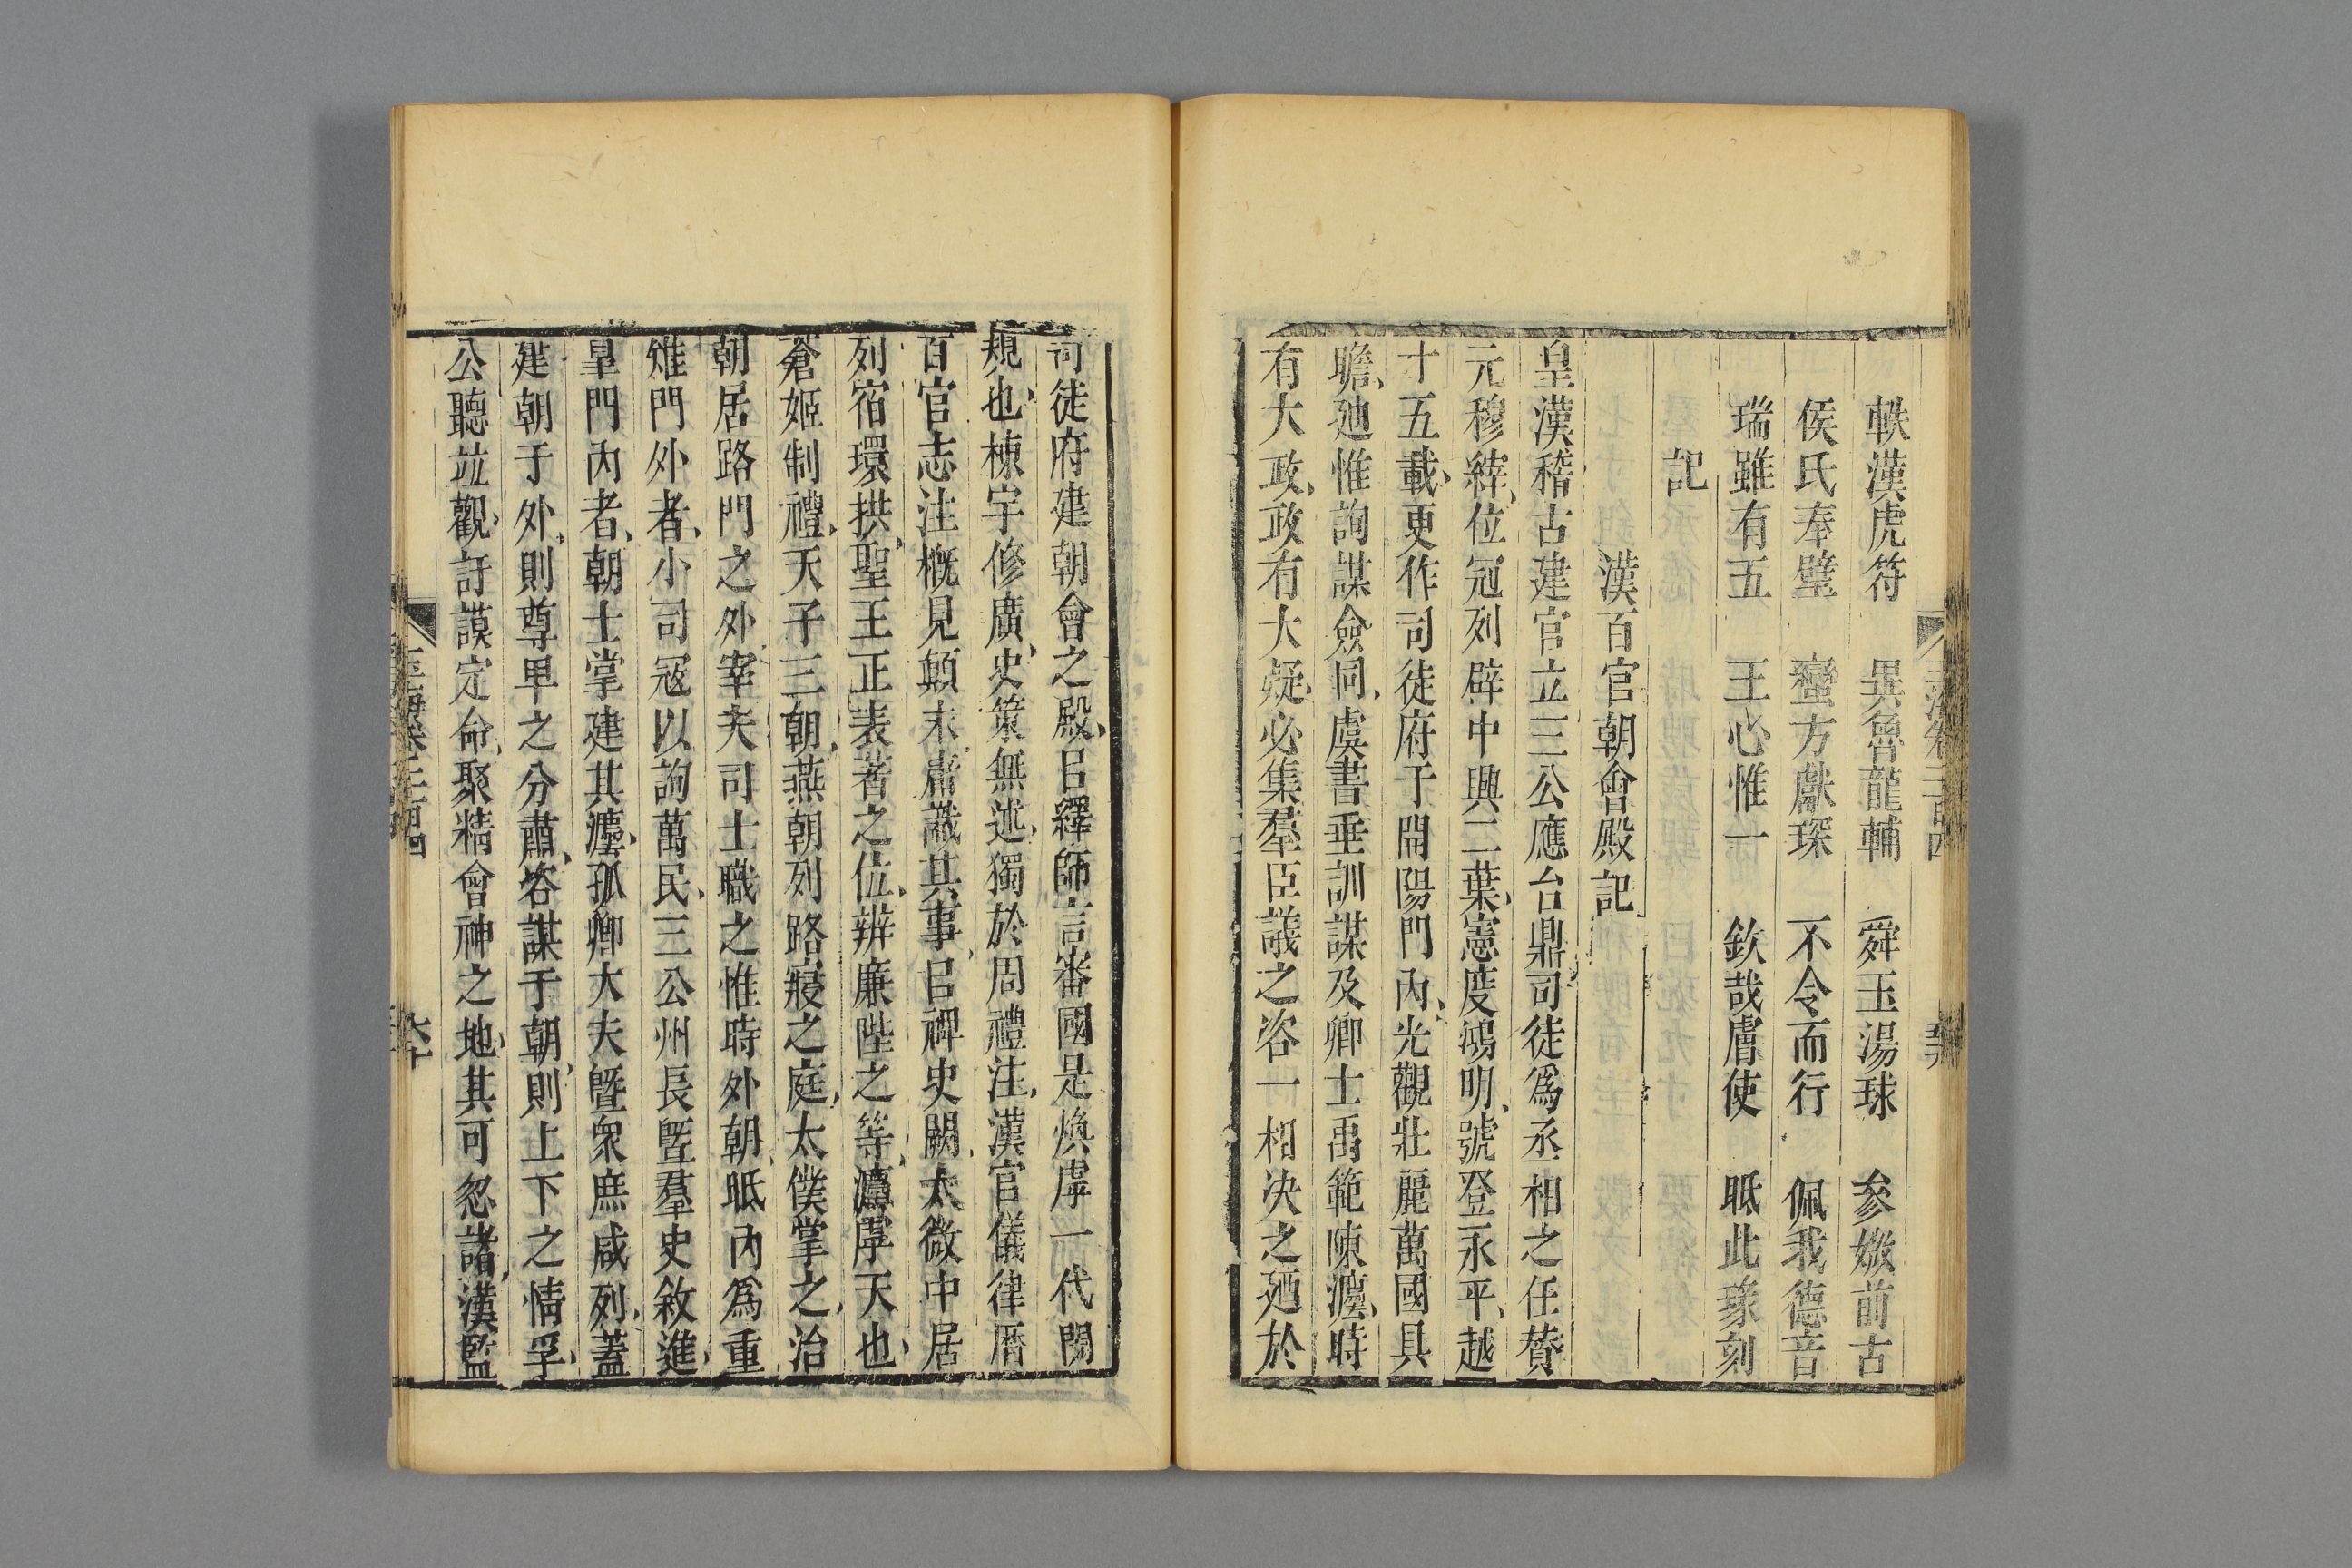 軼漢虎符　異魯龍輔　舜玉湯球　參媺前古
侯氏奉璧　蠻方獻琛　不令而行　佩我德音
瑞雖有五　王心惟一　欽哉膚使　眂此瑑刻
記
漢百官朝會殿記
皇漢稽古建官立三公應台鼎司徒爲丞相之任贊
元穆縡位冠列辟中興二葉憲度鴻明號登永平越
十五載更作司徒府于開陽門內光觀壯麗萬國具
瞻廸惟詢謀僉同虞書垂訓謀及卿士禹範陳灋時
有大政政有大疑必集羣臣議之咨一相決之廼於
司徒府建朝會之殿㠯繹師言審國是煥虖一代閎
規也棟宇修廣史策無述獨於周禮注漢官儀律厤
百官志注槪見顛末肅識其事㠯禆史闕太微中居
列宿環拱聖王正表著之位辨廉陛之等灋虖天也
蒼姬制禮天子三朝燕朝列路寢之庭太僕掌之治
朝居路門之外宰夫司士職之惟時外朝眂內爲重
雉門外者小司寇以詢萬民三公州長曁羣史敘進
皐門內者朝士掌建其灋孤卿大夫曁衆庶咸列蓋
建朝于外則尊卑之分肅咨謀于朝則上下之情孚
公聽竝觀訏謨定命聚精會神之地其可忽諸漢監
六十